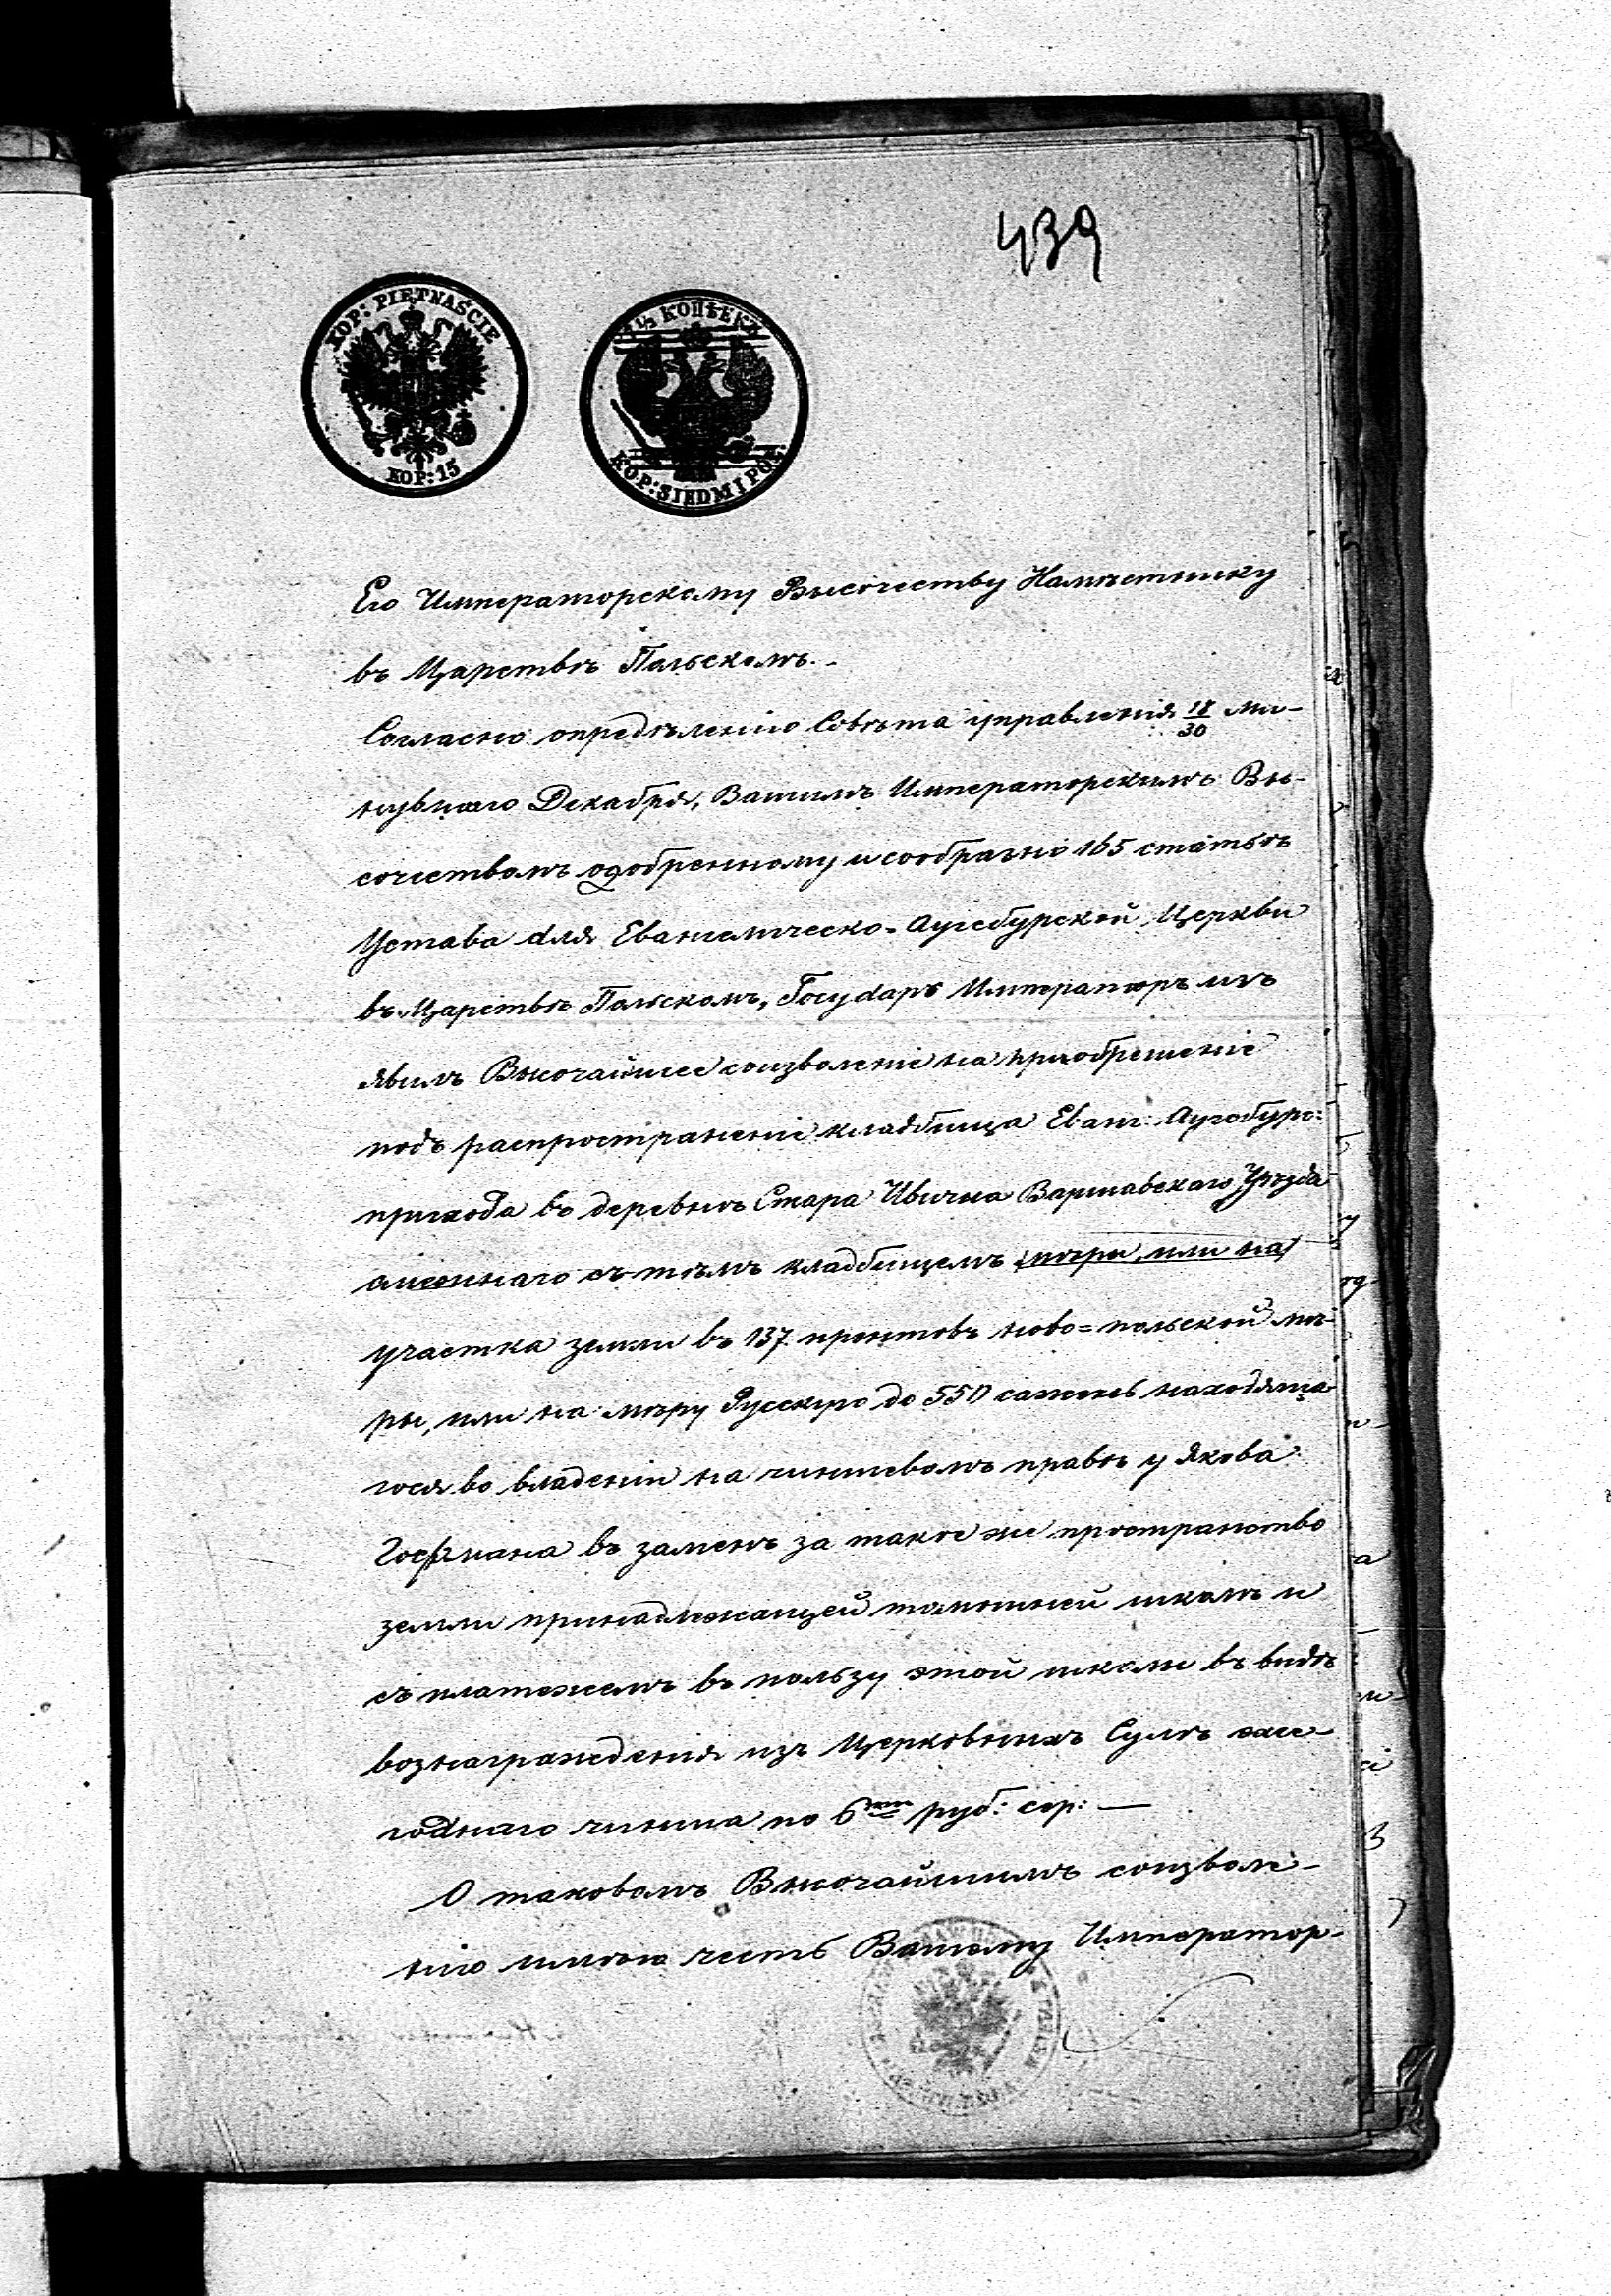 439
KOP: PIĘTNAŚCIE
KOP: 15
7 1/2 КОПѢЕКЪ
KOP: SIEDM I PÓŁ
Его Императорскому Высочеству Намѣстнику
въ Царствѣ Польскомъ.-
Согласно опредѣленію Совѣта управленія 18/30 ми-
нувшаго Декабря, Вашимъ Императорскимъ Вы-
сочествомъ одобренному и сообразно 165 статьѣ
Устава для Евангелическо-Аугсбурской Церкви
въ Царствѣ Польскомъ, Государь Императоръ изъ
явилъ Высочайшее соизволеніе на приобретеніе
подъ распространеніе кладбища Еванг: Аугсбурс:
прихода въ деревнѣ Стара Ивична Варшавскаго Уѣзда
смежнаго съ тѣмъ кладбищемъ (мѣры, или на)
участка земли въ 137 прентовъ ново=польской мѣ-
ры, или на мѣру Русскую до 550 сажень находяща
гося во владеніи на чиншевомъ правѣ у Якова
Гофмана въ заменъ за такое же пространство
земли принадлежащей тамошней школѣ и
съ платежемъ въ пользу этой школы въ видѣ
вознагражденія изъ Церковныхъ Суммъ еже-
годнаго чинша по 6ти руб: сер: —
О таковомъ Высочайшимъ соизволе-
нію имѣю честь Вашему Император-